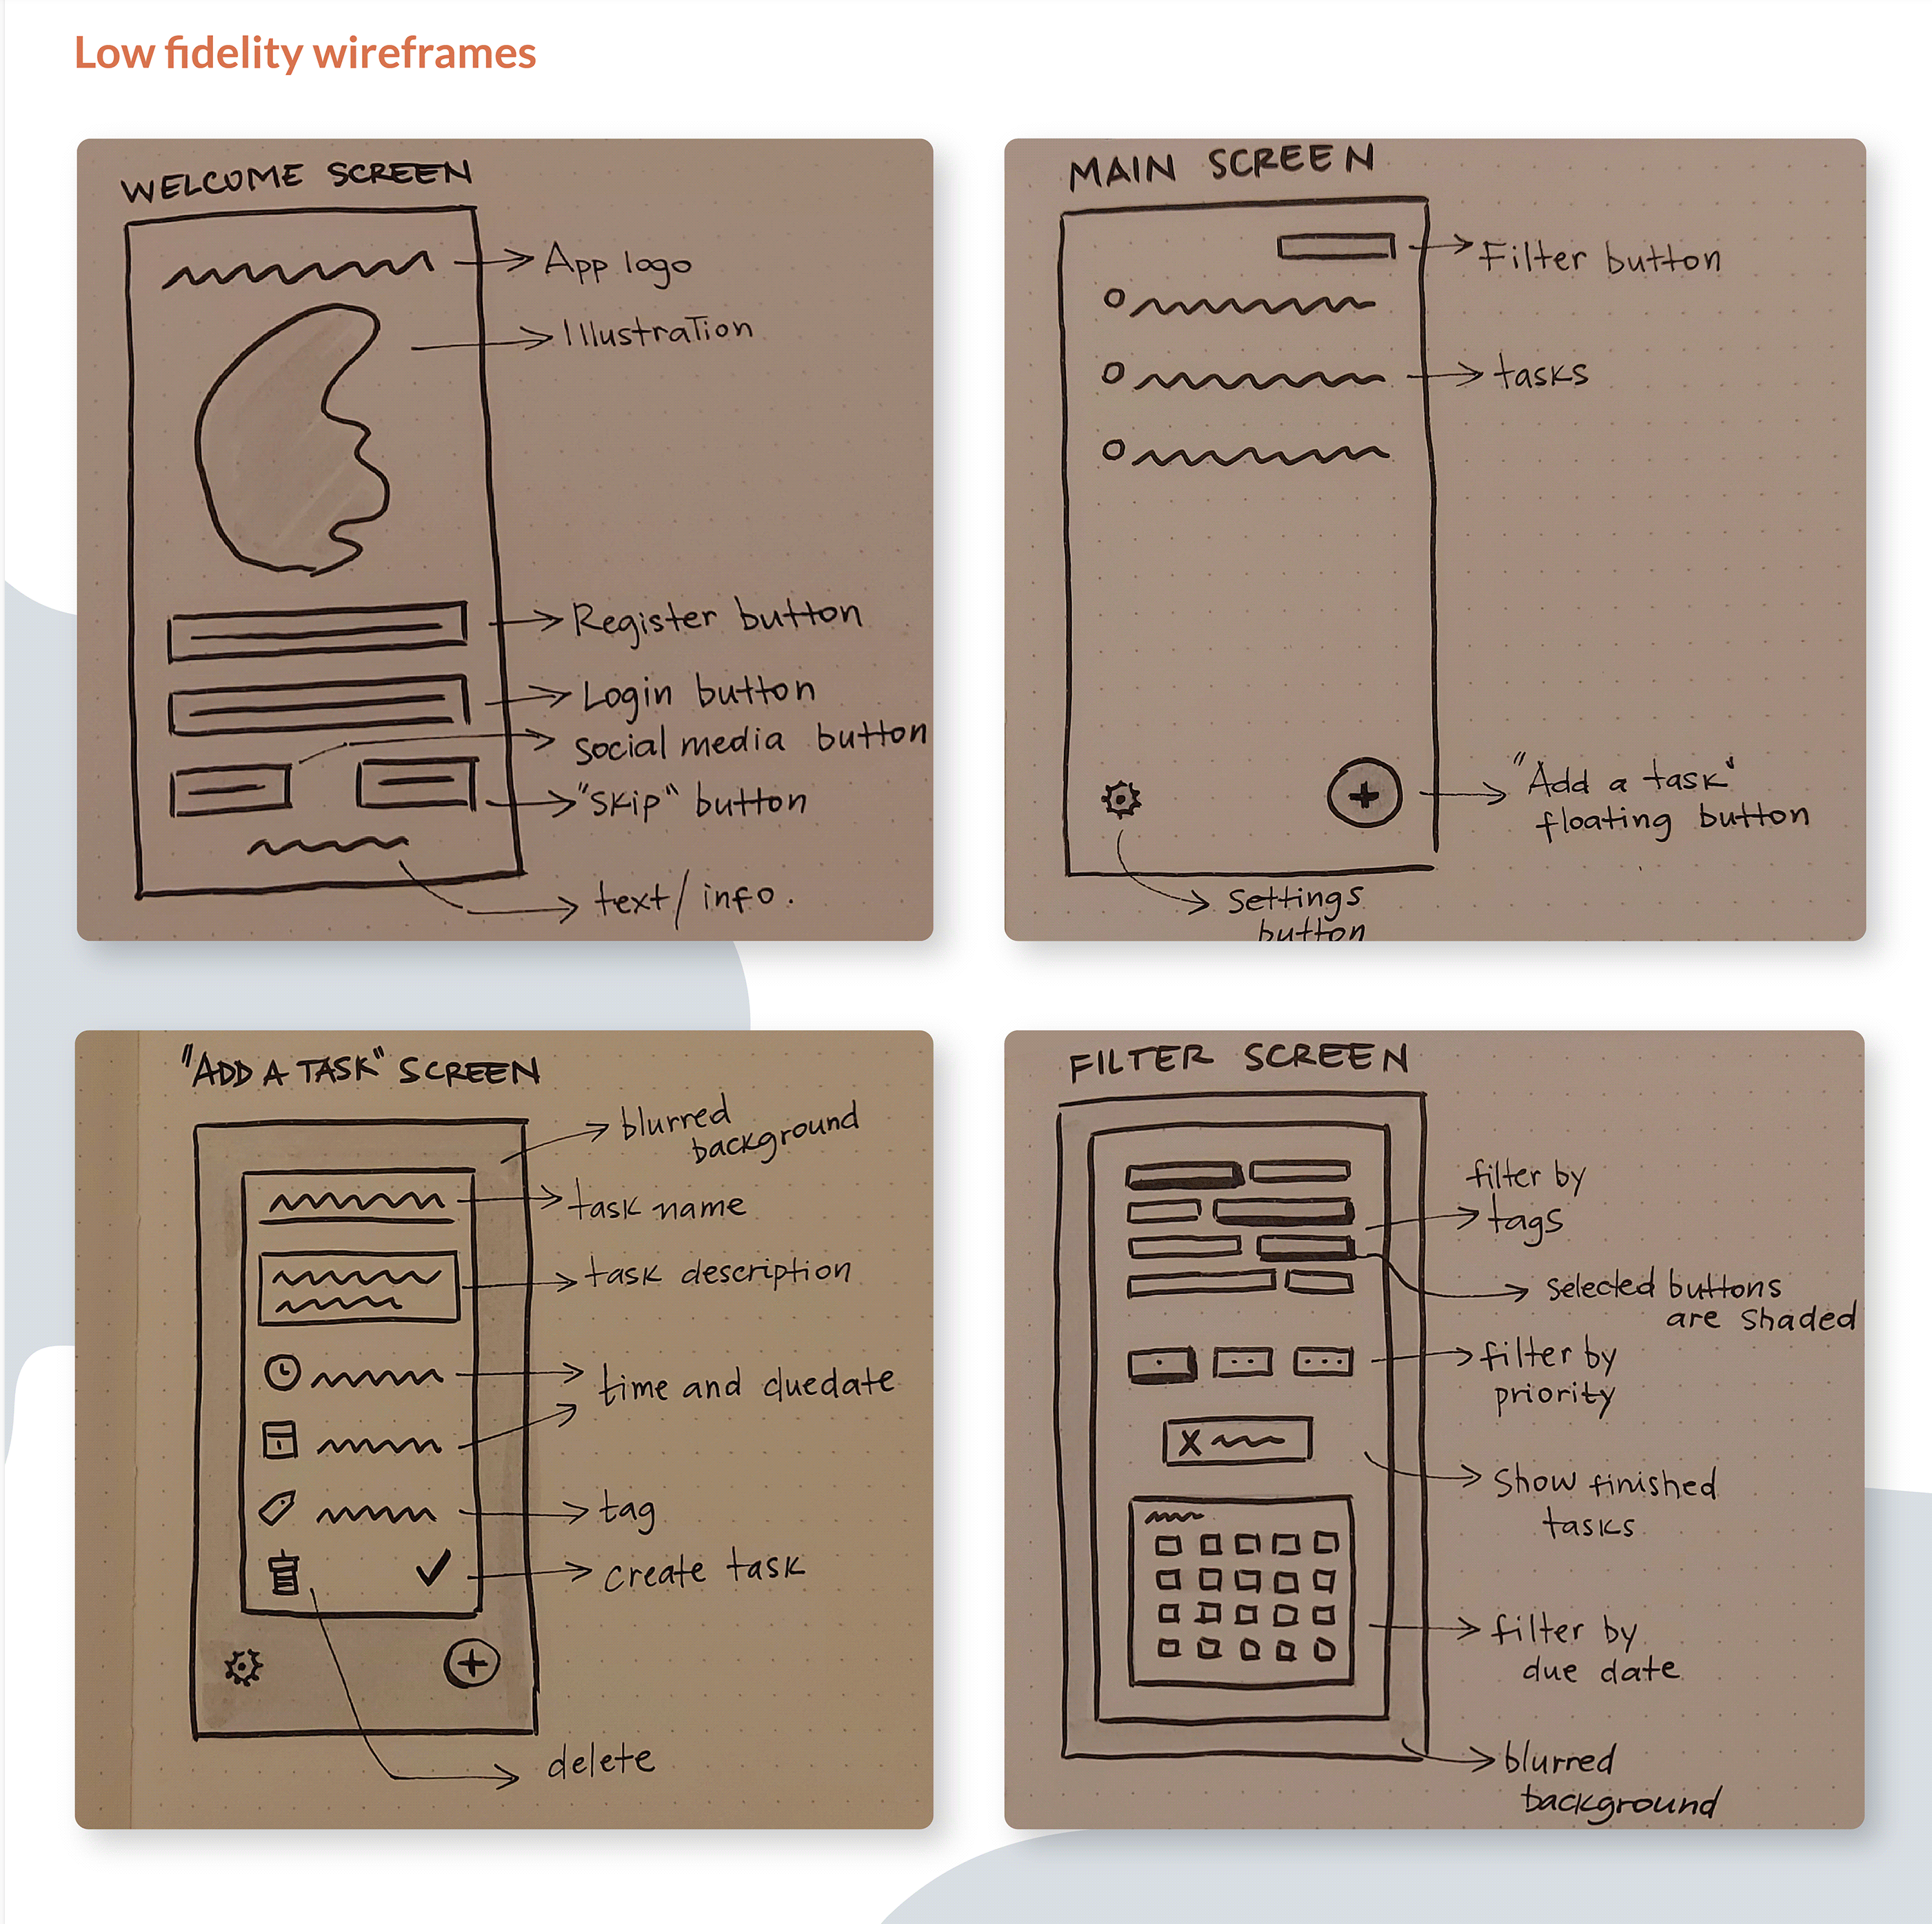 Low fidelity wireframes
WELCOME SCREEN
App logo
Illustration
Register button
Login button
social media button
"Skip" button
text/info.
MAIN SCREEN
Filter button
tasks
"Add a task"
floating button
Settings
button
"ADD A TASK" SCREEN
blurred
background
task name
task description
time and duedate
tag
create task
delete
FILTER SCREEN
filter by
tags
selected buttons
are shaded
filter by
priority
X
Show finished
tasks
filter by
due date
blurred
background